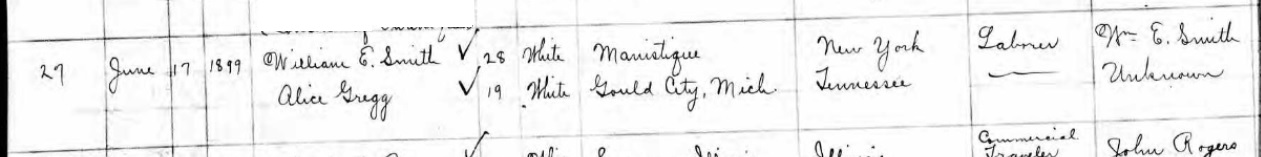 27 June 17 1899 William E. Smith ✓ 28 White Manistique New York Laborer Wm E. Smith
Alice Gregg ✓ 19 White Gould City, Mich. Tennessee — Unknown
Commercial
Illinois Traveler John Rogers